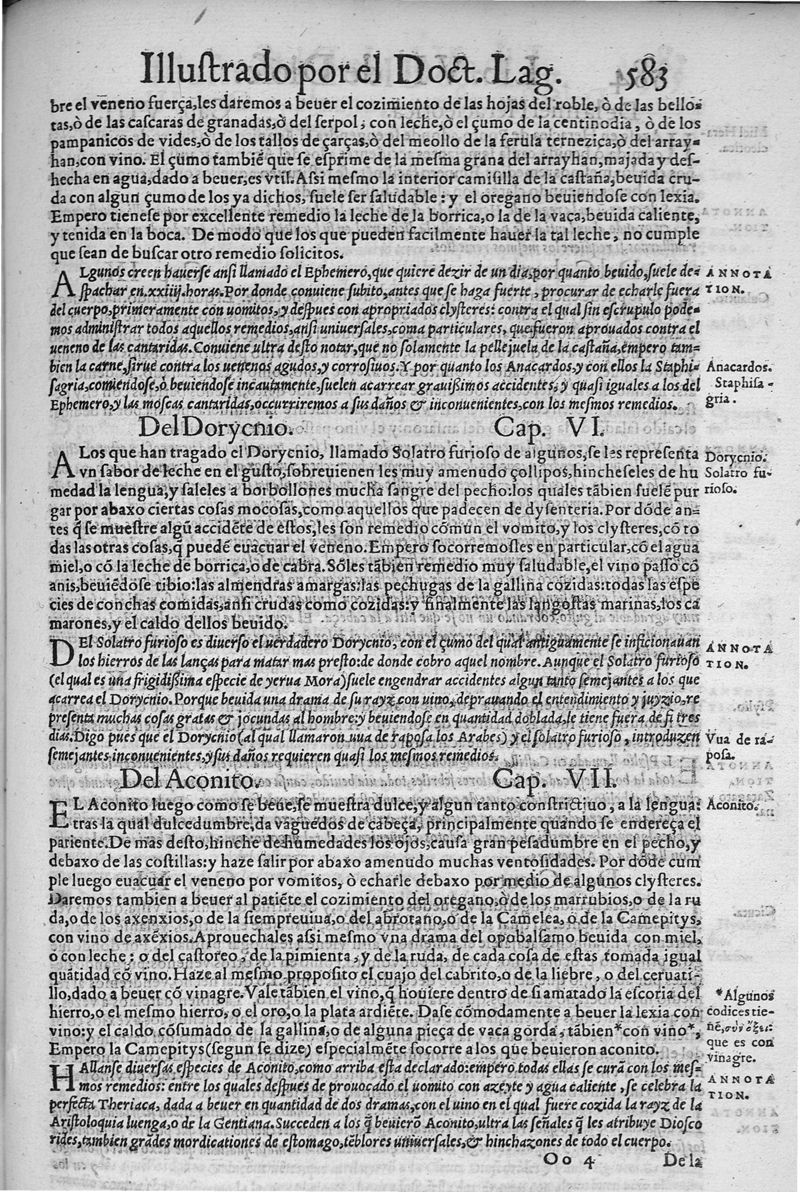 Illustrado por el Doct. Lag. 583
bre el veneno fuerça, les daremos a beuer el cozimiento de las hojas del roble, ò de las bello-
tas, ò de las cascaras de granadas, ò del serpol; con leche, ò el çumo de la centinodia, ò de los
pampanicos de vides, ò de los tallos de çarças, ò del meollo de la ferula ternezica, ò del array-
han, con vino. El çumo tambiẽ que se esprime de la mesma grana del arrayhan, majada y des-
hecha en agua, dado a beuer, es vtil. Assi mesmo la interior camisilla de la castaña, beuida cru-
da con algun çumo de los ya dichos, suele ser saludable: y el oregano beuiendose con lexia.
Empero tienese por excellente remedio la leche de la borrica, o la de la vaca, beuida caliente,
y tenida en la boca. De modo que los que pueden facilmente hauer la tal leche, no cumple
que sean de buscar otro remedio solicitos.
ALgunos creen hauerse ansi llamado el Ephemero, que quiere dezir de un dia, por quanto beuido, suele de-
spachar en .xxiiij. horas. Por donde conuiene subito, antes que se haga fuerte, procurar de echarle fuera
del cuerpo, primeramente con uomitos, y despues con apropiados clysteres: contra el qual sin escrupulo pode-
mos administrar todos aquellos remedios, ansi uniuersales, como particulares, que fueron aprouados contra el
ueneno de las cantaridas. Conuiene ultra desto notar, que no solamente la pellejuela de la castaña, empero tam-
bien la carne, sirue contra los uenenos agudos, y corrosiuos. Y por quanto los Anacardos, y con ellos la Staphi-
sagria, comiendose, ò beuiendose incautamente, suelen acarrear grauißimos accidentes, y quasi iguales a los del
Ephemero, y las moscas cantaridas, occurriremos a sus daños & inconuenientes, con los mesmos remedios.
ANNOTA
TION.
Anacardos.
Staphisa-
gria.
Del Dorycnio. Cap. VI.
A Los que han tragado el Dorycnio, llamado Solatro furioso de algunos, se les representa
vn sabor de leche en el gusto, sobreuienen les muy amenudo çollipos, hincheseles de hu
medad la lengua, y saleles a borbollones mucha sangre del pecho: los quales tãbien fuelẽ pur
gar por abaxo ciertas cosas mocosas, como aquellos que padecen de dysenteria. Por dóde an-
tes q̃ se muestre algũ accidẽte de estos, les son remedio comun el vomito, y los clysteres, cõ to
das las otras cosas, q̃ puedẽ euacuar el veneno. Empero socorremosles en particular, cõ el agua
miel, o cõ la leche de borrica, ò de cabra. Sóles tãbien remedio muy saludable, el vino passo cõ
anis, beuiẽdose tibio: las almendras amargas: las pechugas de la gallina cozidas: todas las espe
cies de conchas comidas, ansi crudas como cozidas: y finalmente las langostas marinas, los ca
marones, y el caldo dellos beuido.
Dorycnio.
Solatro fu-
rioso.
DEl Solatro furioso es diuerso el uerdadero Dorycnio, con el çumo del qual antiguamente se inficionauan
los hierros de las lanças para matar mas presto: de donde cobro aquel nombre. Aunque el Solatro furioso
(el qual es una frigidißima especie de yerua Mora) suele engendrar accidentes algun tanto semejantes a los que
acarrea el Dorycnio. Porque beuida una drama de su rayz, con uino, deprauando el entendimiento y juyzio, re
presenta muchas cosas gratas & jocundas al hombre: y beuiendose en quantidad doblada, le tiene fuera de si tres
dias. Digo pues que el Dorycnio (al qual llamaron uua de raposa los Arabes) y el solatro furioso, introduzen
semejantes inconuenientes, y sus daños requieren quasi los mesmos remedios.
ANNOTA
TION.
Vua de ra-
posa.
Del Aconito. Cap. VII.
EL Aconito luego como se beue, se muestra dulce, y algun tanto constrictiuo, a la lengua:
tras la qual dulcedumbre, da vaguedos de cabeça, principalmente quando se endereça el
patiente. De mas desto, hinche de humedades los ojos, causa gran pesadumbre en el pecho, y
debaxo de las costillas: y haze salir por abaxo amenudo muchas ventosidades. Por dóde cum
ple luego euacuar el veneno por vomitos, ò echarle debaxo por medio de algunos clysteres.
Daremos tambien a beuer al patiẽte el cozimiento del oregano, ò de los marrubios, o de la ru
da, o de los axenxios, o de la siempreuiua, o del abrotano, ò de la Camelea, o de la Camepitys,
con vino de axẽxios. Aprouechales assi mesmo vna drama del opobalsamo beuida con miel,
ò con leche: o del castoreo, de la pimienta, y de la ruda, de cada cosa de estas tomada igual
quãtidad cõ vino. Haze al mesmo proposito el cuajo del cabrito, o de la liebre, o del ceruati-
llo, dado a beuer cõ vinagre. Vale tãbien el vino, q̃ houiere dentro de si amatado la escoria del
hierro, o el mesmo hierro, o el oro, o la plata ardiẽte. Dase cómodamente a beuer la lexia con
vino: y el caldo cõsumado de la gallina, o de alguna pieça de vaca gorda, tãbien* con vino*,
Empero la Camepitys (segun se dize) especialmẽte socorre a los que beuieron aconito.
Aconito.
*Algunos
codices tie-
nẽ, σὺν ὄξει:
que es con
vinagre.
HAllanse diuersas especies de Aconito, como arriba esta declarado: empero todas ellas se curã con los mes-
mos remedios: entre los quales despues de prouocado el uomito con azeyte y agua caliente, se celebra la
perfecta Theriaca, dada a beuer en quantidad de dos dramas, con el uino en el qual fuere cozida la rayz de la
Aristoloquia luenga, o de la Gentiana. Succeden a los q̃ beuierõ Aconito, ultra las señales q̃ les atribuye Diosco
rides, tambien grãdes mordicationes de estomago, tẽblores uniuersales, & hinchazones de todo el cuerpo.
ANNOTA
TION.
Oo 4 De la